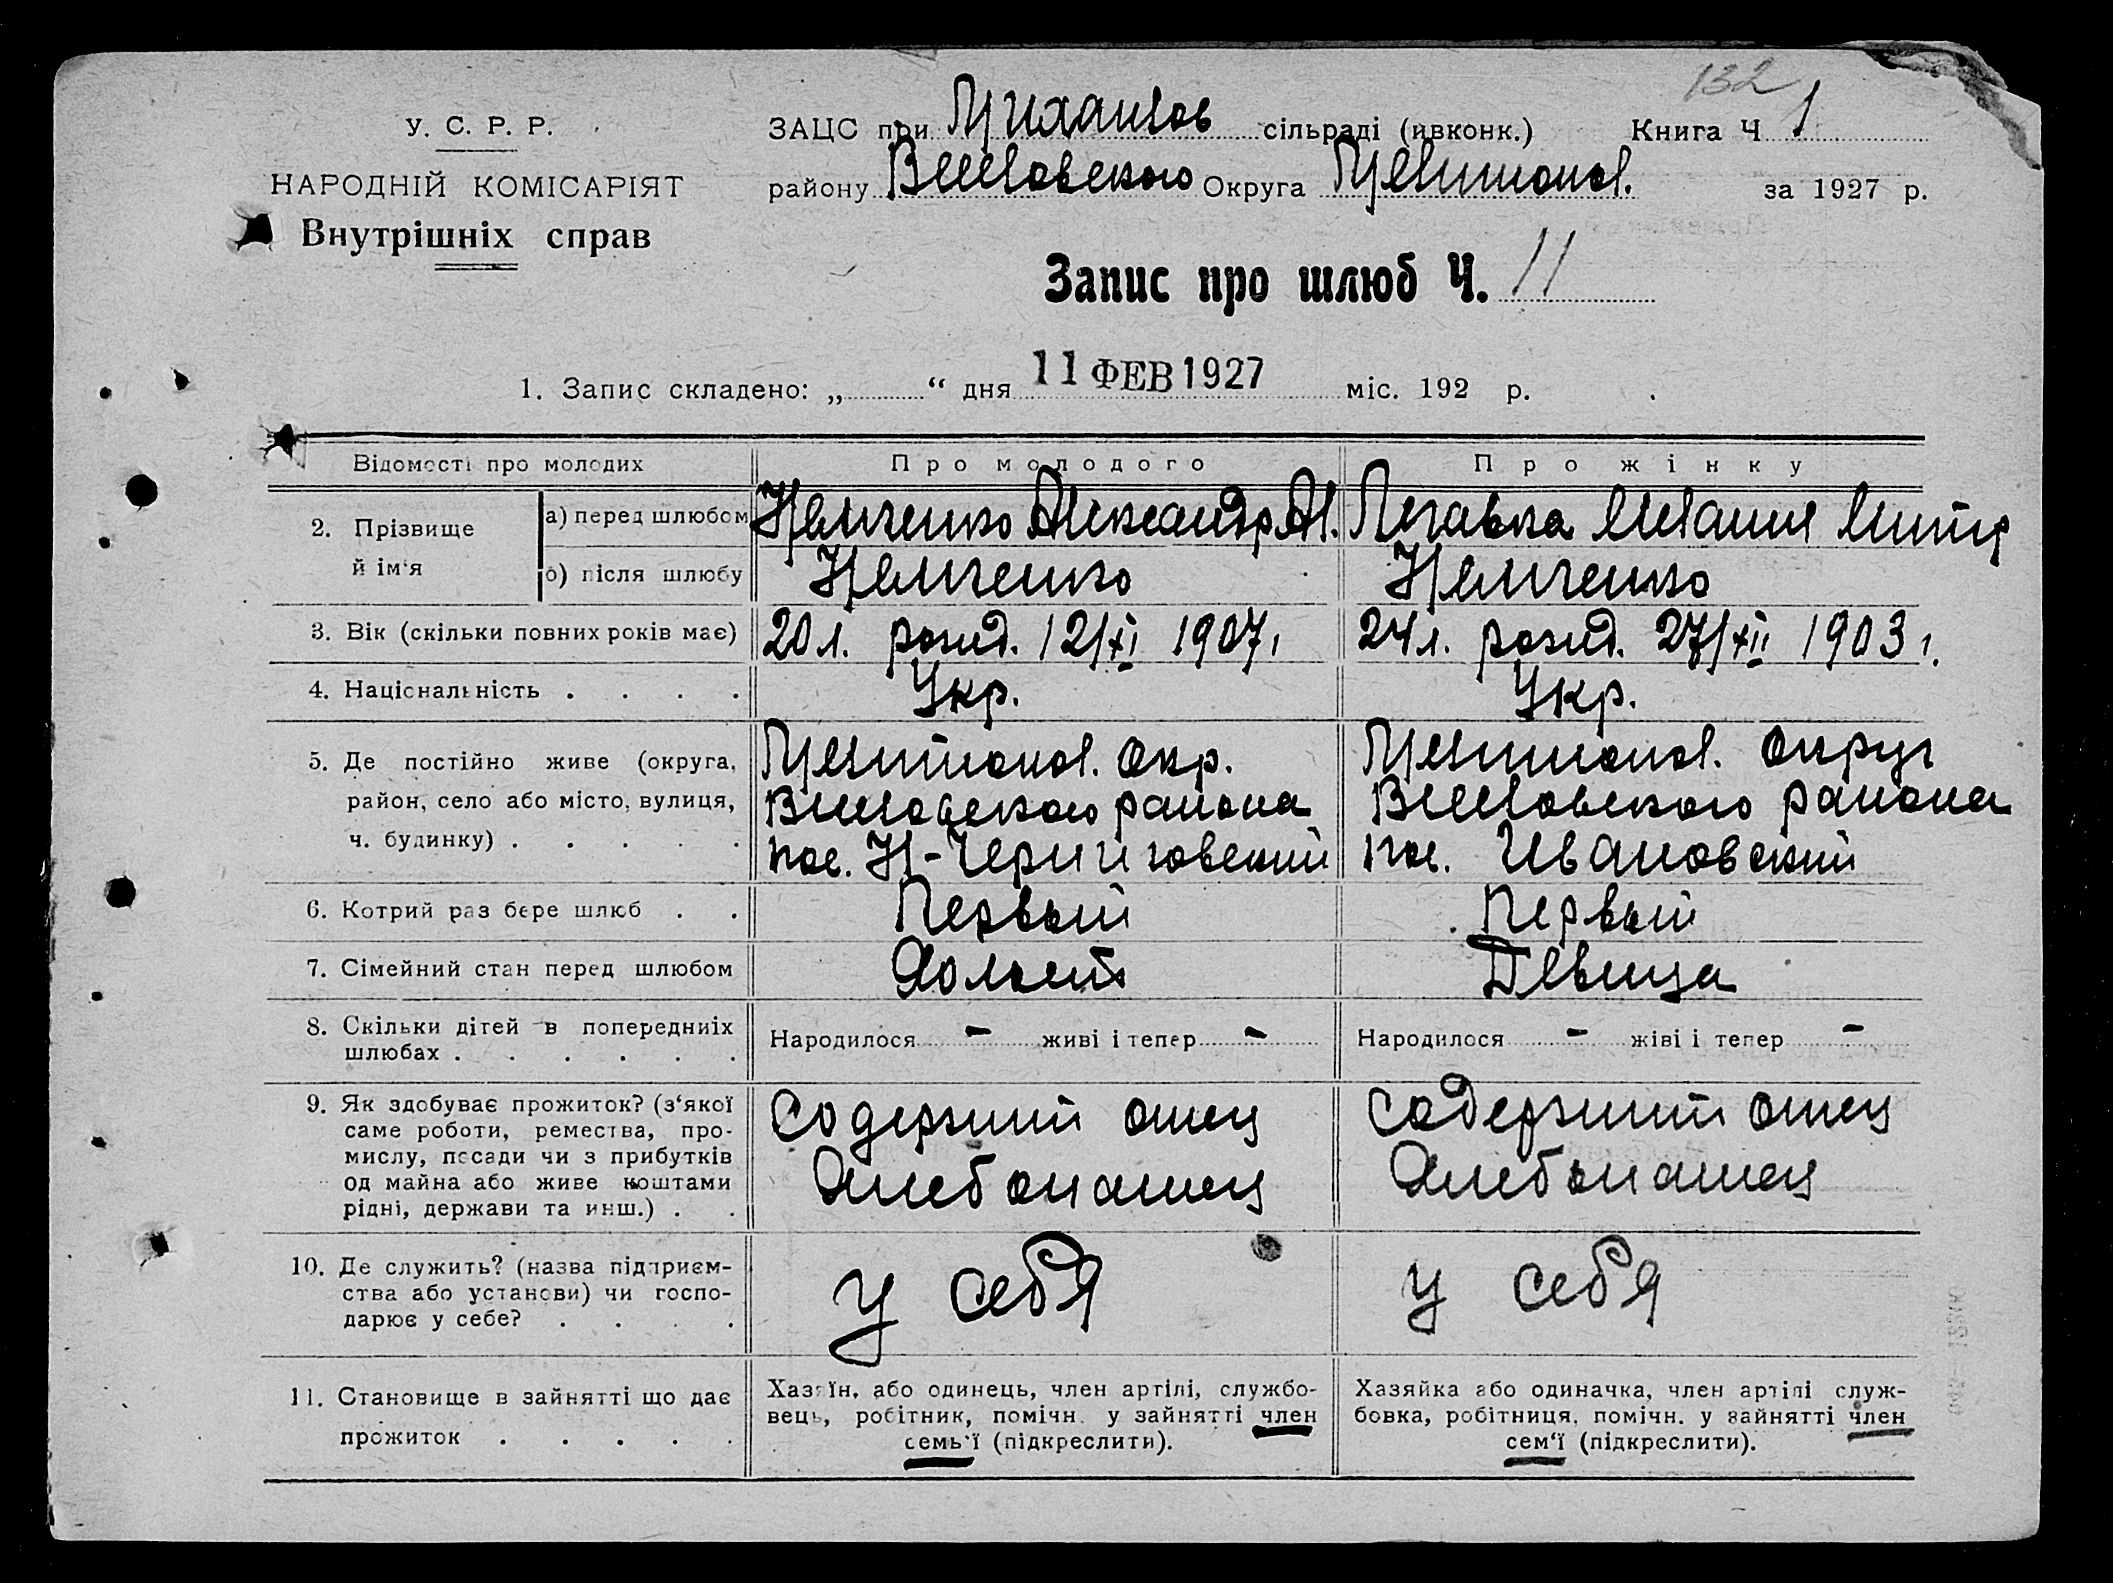 132
У. С. Р. Р.
НАРОДНІЙ КОМІСАРІЯТ
Внутрішніх справ
ЗАЦС при сільраді (ивконк.) Книга Ч 1
району Округа за 1927 р.
Запис про шлюб Ч. 11
1. Запис складено: „ “ дня 11 ФЕВ 1927 міс. 192 р.
Відомості про молодих Про молодого Про жінку
2. Прізвище й ім'я
а) перед шлюбом Немченко Александр Ал.
б) після шлюбу Немченко Немченко
3. Вік (скільки повних років має) 20 л. рожд. 12/XI 1907, 24 л. рожд. 27/XII 1903 г.
4. Національність . . . . Укр. Укр.
5. Де постійно живе (округа, окр. округ
район, село або місто, вулиця, района района
ч. будинку) . . . . . пос. Н-Черниговский пос. Ивановский
6. Котрий раз бере шлюб . . Первый Первый
7. Сімейний стан перед шлюбом Холост Девица
8. Скільки дітей в попередниіх
шлюбах . . . . . .
Народилося - живі і тепер - Народилося - жіві і тепер -
9. Як здобуває прожиток? (з‘якої
саме роботи, ремества, про-
мислу, посади чи з прибутків
од майна або живе коштами
рідні, держави та инш.) . .
Содержит отец Содержит отец
Хлебопашец Хлебопашец
10. Де служить? (назва підприєм-
ства або установи) чи госпо-
дарює у себе? . . . .
у себя у себя
11. Становище в зайнятті що дає
прожиток . . . . .
Хазяїн, або одинець, член артілі, службо-
вець, робітник, помічн. у зайнятті член
семь'ї (підкреслити).
Хазяйка або одиначка, член артілі служ-
бовка, робітниця, помічн. у зайнятті член
сем'ї (підкреслити).